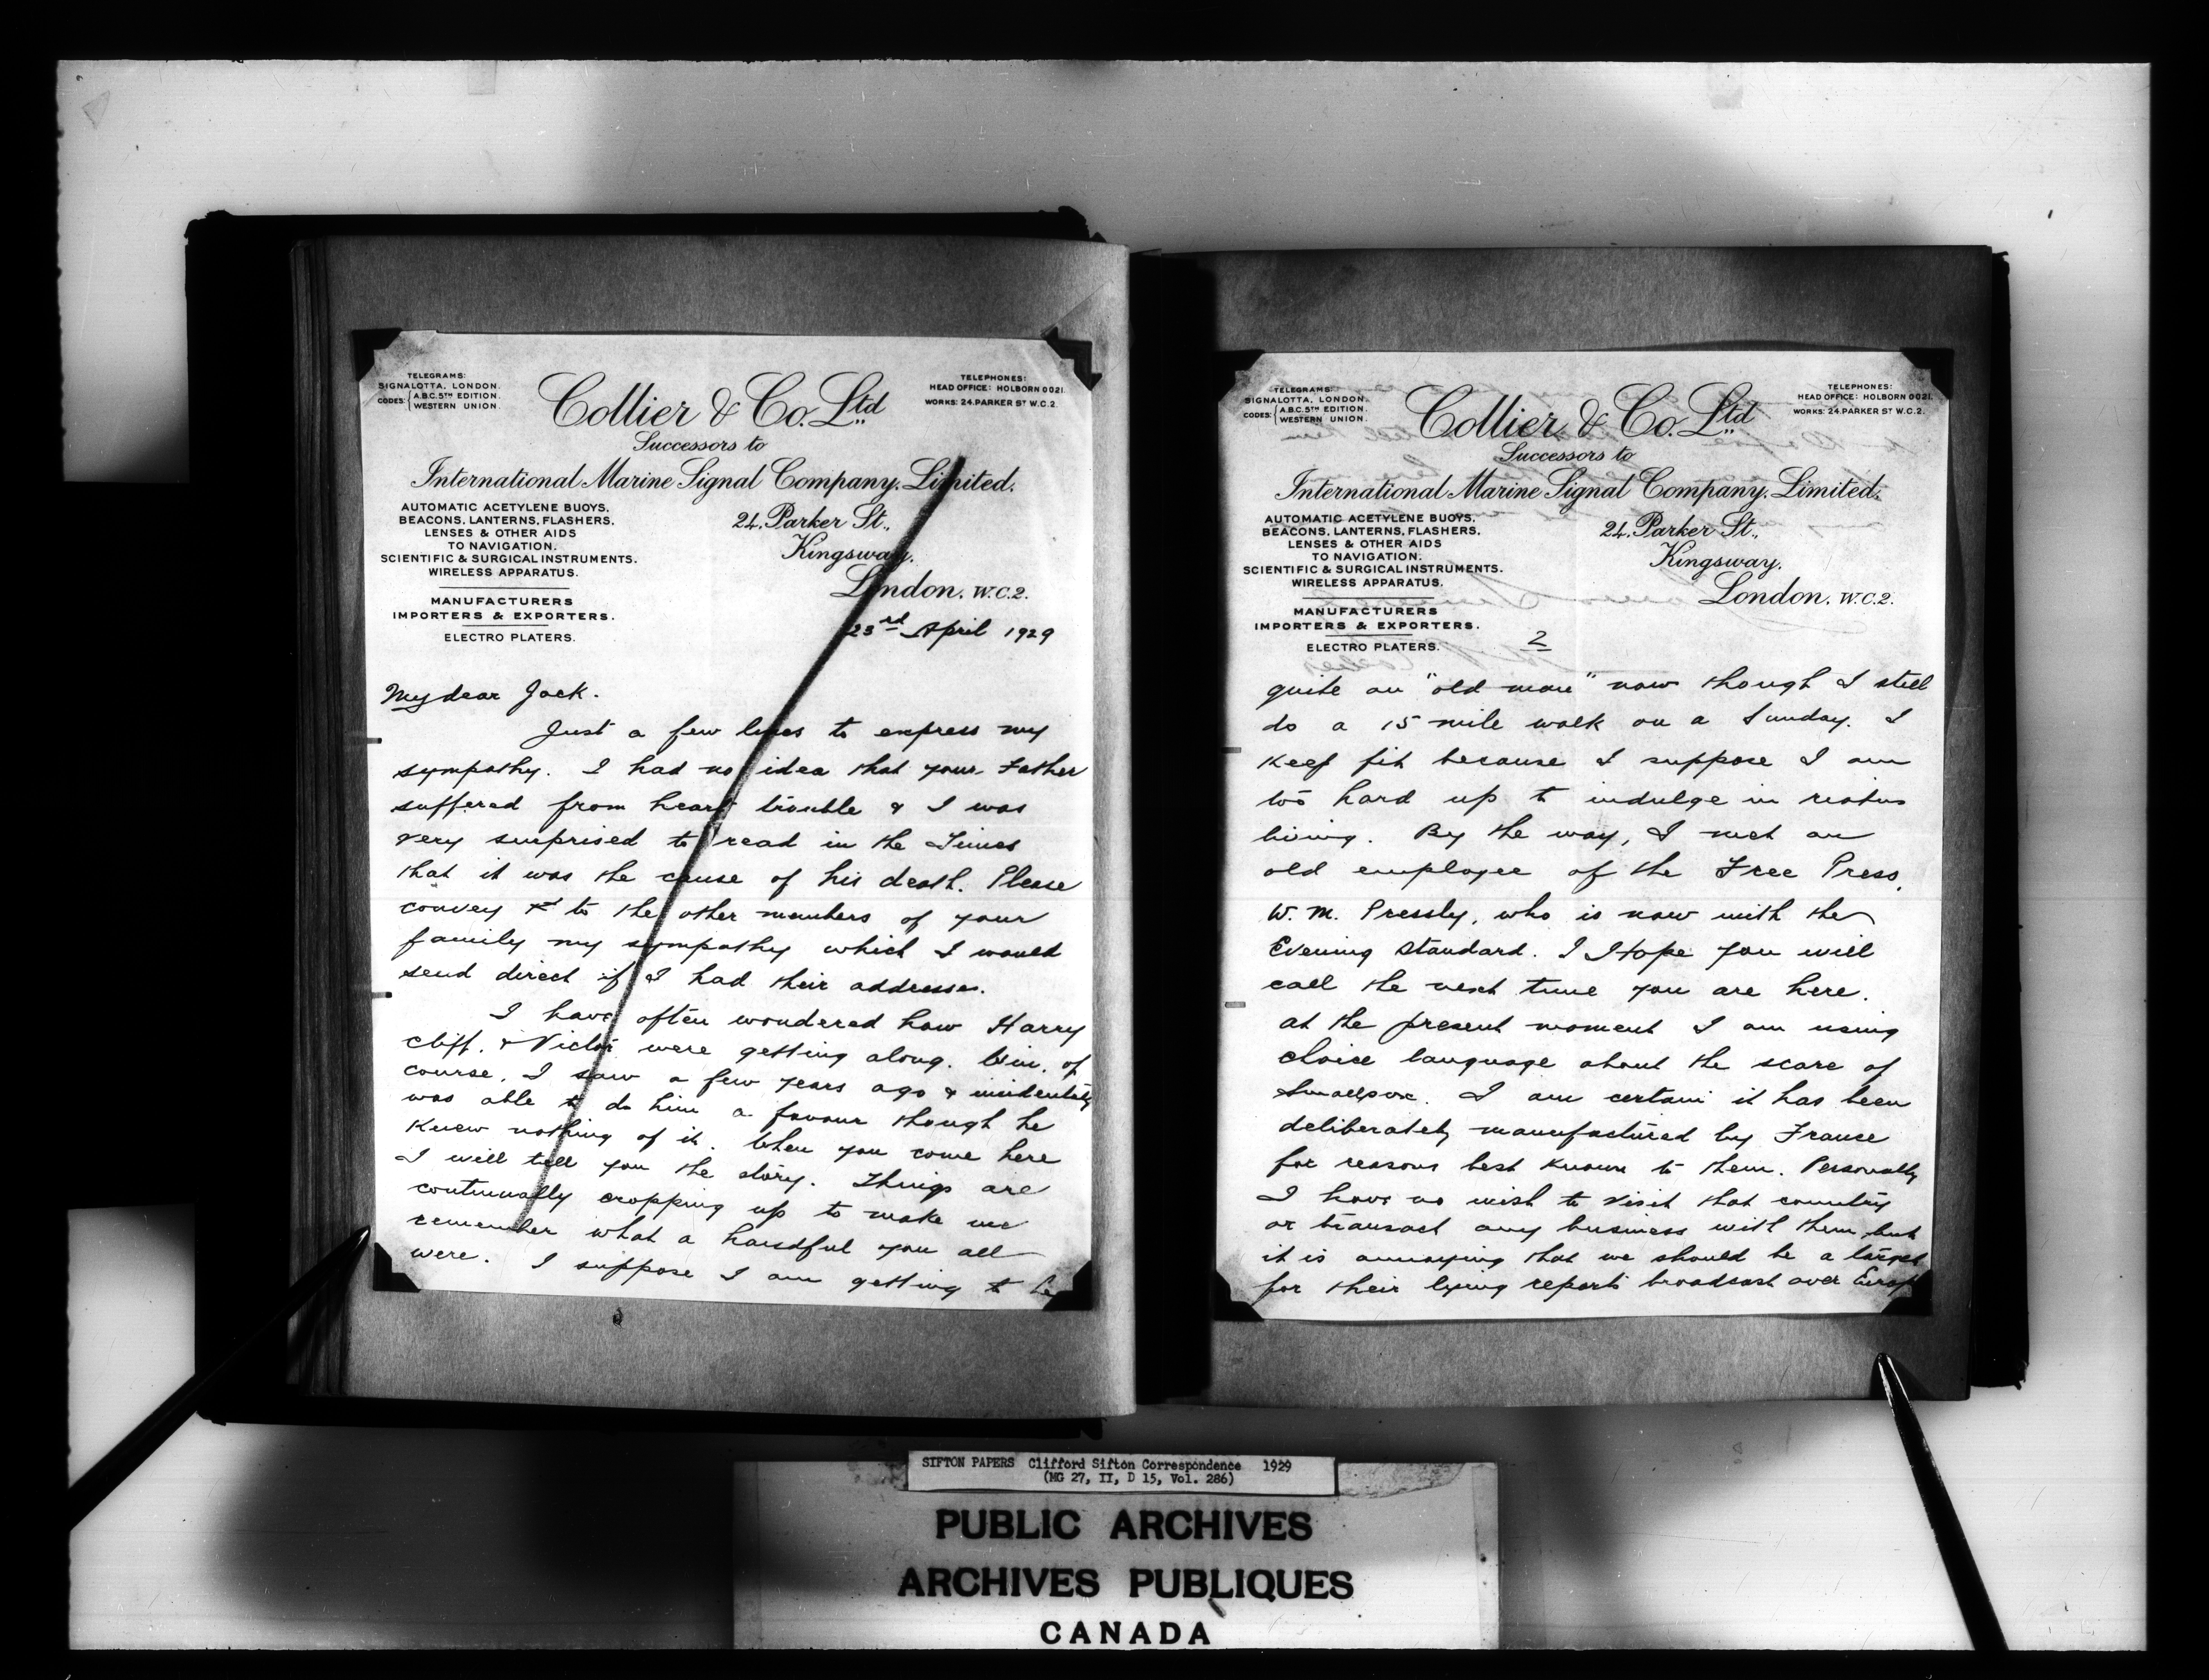 TELEGRAMS:
SIGNALOTTA, LONDON.
CODES: { A.B.C. 5TH EDITION.
WESTERN UNION.
Collier & Co. Ltd
TELEPHONES:
HEAD OFFICE: HOLBORN 0021.
WORKS: 24. PARKER ST W.C.2.
Successors to
International Marine Signal Company, Limited.
AUTOMATIC ACETYLENE BUOYS,
BEACONS, LANTERNS, FLASHERS,
LENSES & OTHER AIDS
TO NAVIGATION.
SCIENTIFIC & SURGICAL INSTRUMENTS.
WIRELESS APPARATUS.
MANUFACTURERS
IMPORTERS & EXPORTERS.
ELECTRO PLATERS.
24, Parker St.,
Kingsway,
London. W.C.2.
23rd April 1929
My dear Jack.
Just a few lines to express my
sympathy. I had no idea that your Father
suffered from heart trouble & I was
very surprised to read in the Times
that it was the cause of his death. Please
convey to the other members of your
family my sympathy which I would
send direct if I had their addresses.
I have often wondered how Harry
Cliff. & Victor were getting along. Win. of
course, I saw a few years ago & incidentally
was able to do him a favour though he
knew nothing of it. When you come here
I will tell you the story. Things are
continually cropping up to make me
remember what a handful you all
were. I suppose I am getting to be
TELEGRAMS:
SIGNALOTTA, LONDON.
CODES: { A.B.C. 5TH EDITION.
WESTERN UNION.
Collier & Co. Ltd
TELEPHONES:
HEAD OFFICE: HOLBORN 0021.
WORKS: 24. PARKER ST W.C.2.
Successors to
International Marine Signal Company, Limited.
AUTOMATIC ACETYLENE BUOYS,
BEACONS, LANTERNS, FLASHERS,
LENSES & OTHER AIDS
TO NAVIGATION.
SCIENTIFIC & SURGICAL INSTRUMENTS.
WIRELESS APPARATUS.
MANUFACTURERS
IMPORTERS & EXPORTERS.
ELECTRO PLATERS.
24, Parker St.,
Kingsway,
London. W.C.2.
2
quite an "old man" now though I still
do a 15 mile walk on a Sunday. I
keep fit because I suppose I am
too hard up to indulge in riotus
living. By the way, I met an
old employee of the Free Press,
W. M. Pressly, who is now with the
Evening Standard. I Hope you will
call the next time you are here.
at the present moment I am using
choice language about the scare of
Smallpox. I am certain it has been
deliberately manufactured by France
for reasons best known to them. Personally
I have no wish to visit that country
or transact any business with them, but
it is annoying that we should be a target
for their lying reports broadcast over Europe
SIFTON PAPERS Clifford Sifton Correspondence 1929
(MG 27, II, D 15, Vol. 286)
PUBLIC ARCHIVES
ARCHIVES PUBLIQUES
CANADA